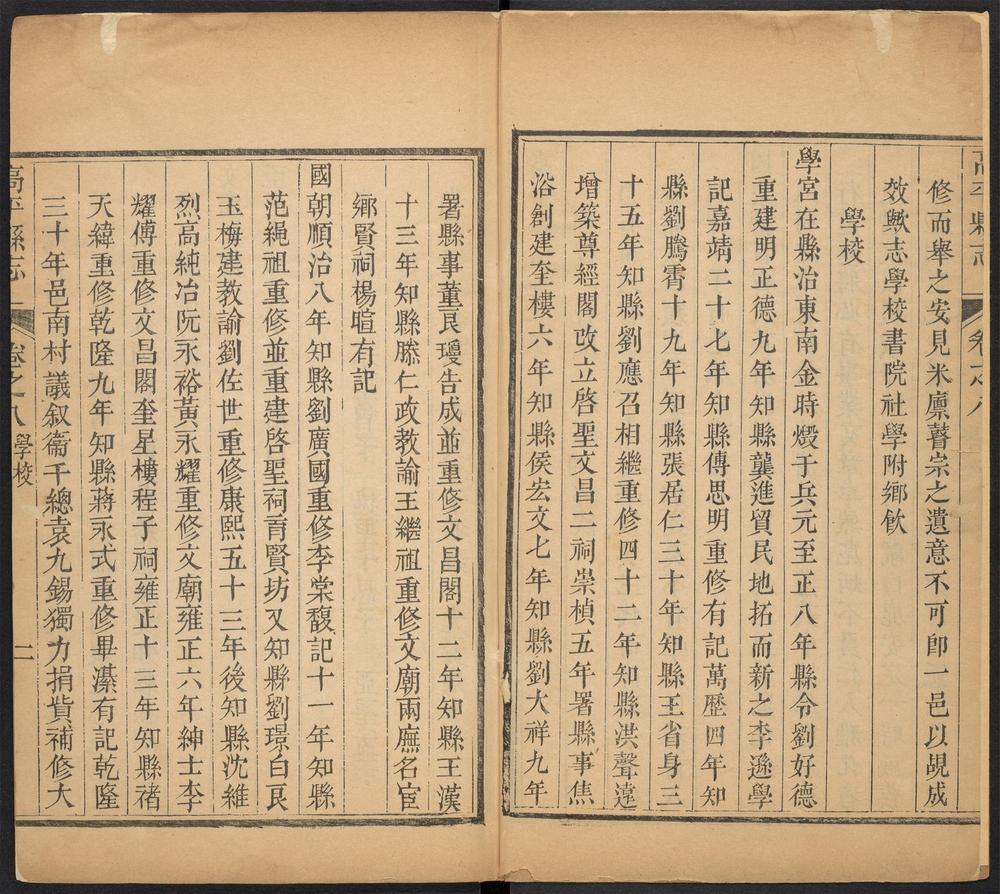 高平縣志
卷之八
修而舉之安見米廪瞽宗之遺意不可卽一邑以覘成
效歟志學校書院社學附鄉飮
學校
學宮在縣治東南金時燬于兵元至正八年縣令劉好德
重建明正德九年知縣龔進貿民地拓而新之李遜學
記嘉靖二十七年知縣傅思明重修有記萬歷四年知
縣劉騰霄十九年知縣張居仁三十年知縣王省身三
十五年知縣劉應召相繼重修四十二年知縣洪聲遠
增築尊經閣改立啓聖文昌二祠崇楨五年署縣事焦
浴創建奎樓六年知縣侯宏文七年知縣劉大祥九年
署縣事董良瓊告成並重修文昌閣十二年知縣王漢
十三年知縣滕仁政教諭王繼祖重修文廟兩廡名宦
鄉賢祠楊暄有記
國朝順治八年知縣劉廣國重修李棠馥記十一年知縣
范繩祖重修並重建啓聖祠育賢坊又知縣劉璟白良
玉梅建教諭劉佐世重修康熙五十三年後知縣沈維
烈高純冶阮永裕黃永耀重修文廟雍正六年紳士李
耀傅重修文昌閣奎星樓程子祠雍正十三年知縣禇
天緯重修乾隆九年知縣蔣永式重修畢濴有記乾隆
三十年邑南村議叙衞千總袁九錫獨力捐貲補修大
高平縣志
卷之八
學校
二